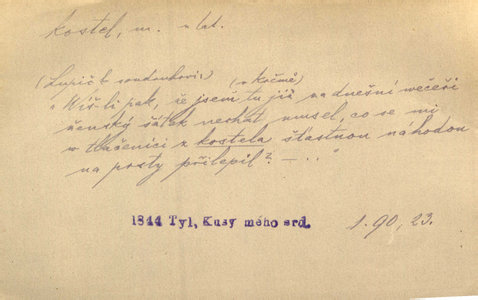 kostel, m. v lat.
(Lupič k soudruhovi:) (v krčmě)
„Víš-li pak, že jsem tu již na dnešní večeři
ženský šátek nechat musel, co se mi
w tlačenici z kostela šťastnou nahodou
na prsty přilepil? – ..."
1844 Tyl, Kusy mého srd. 1. 90, 23.